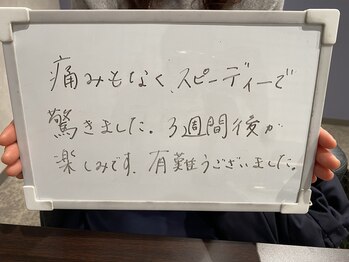 痛みもなく、スピーディーで
驚きました。3週間後が
楽しみです。有難うございました。